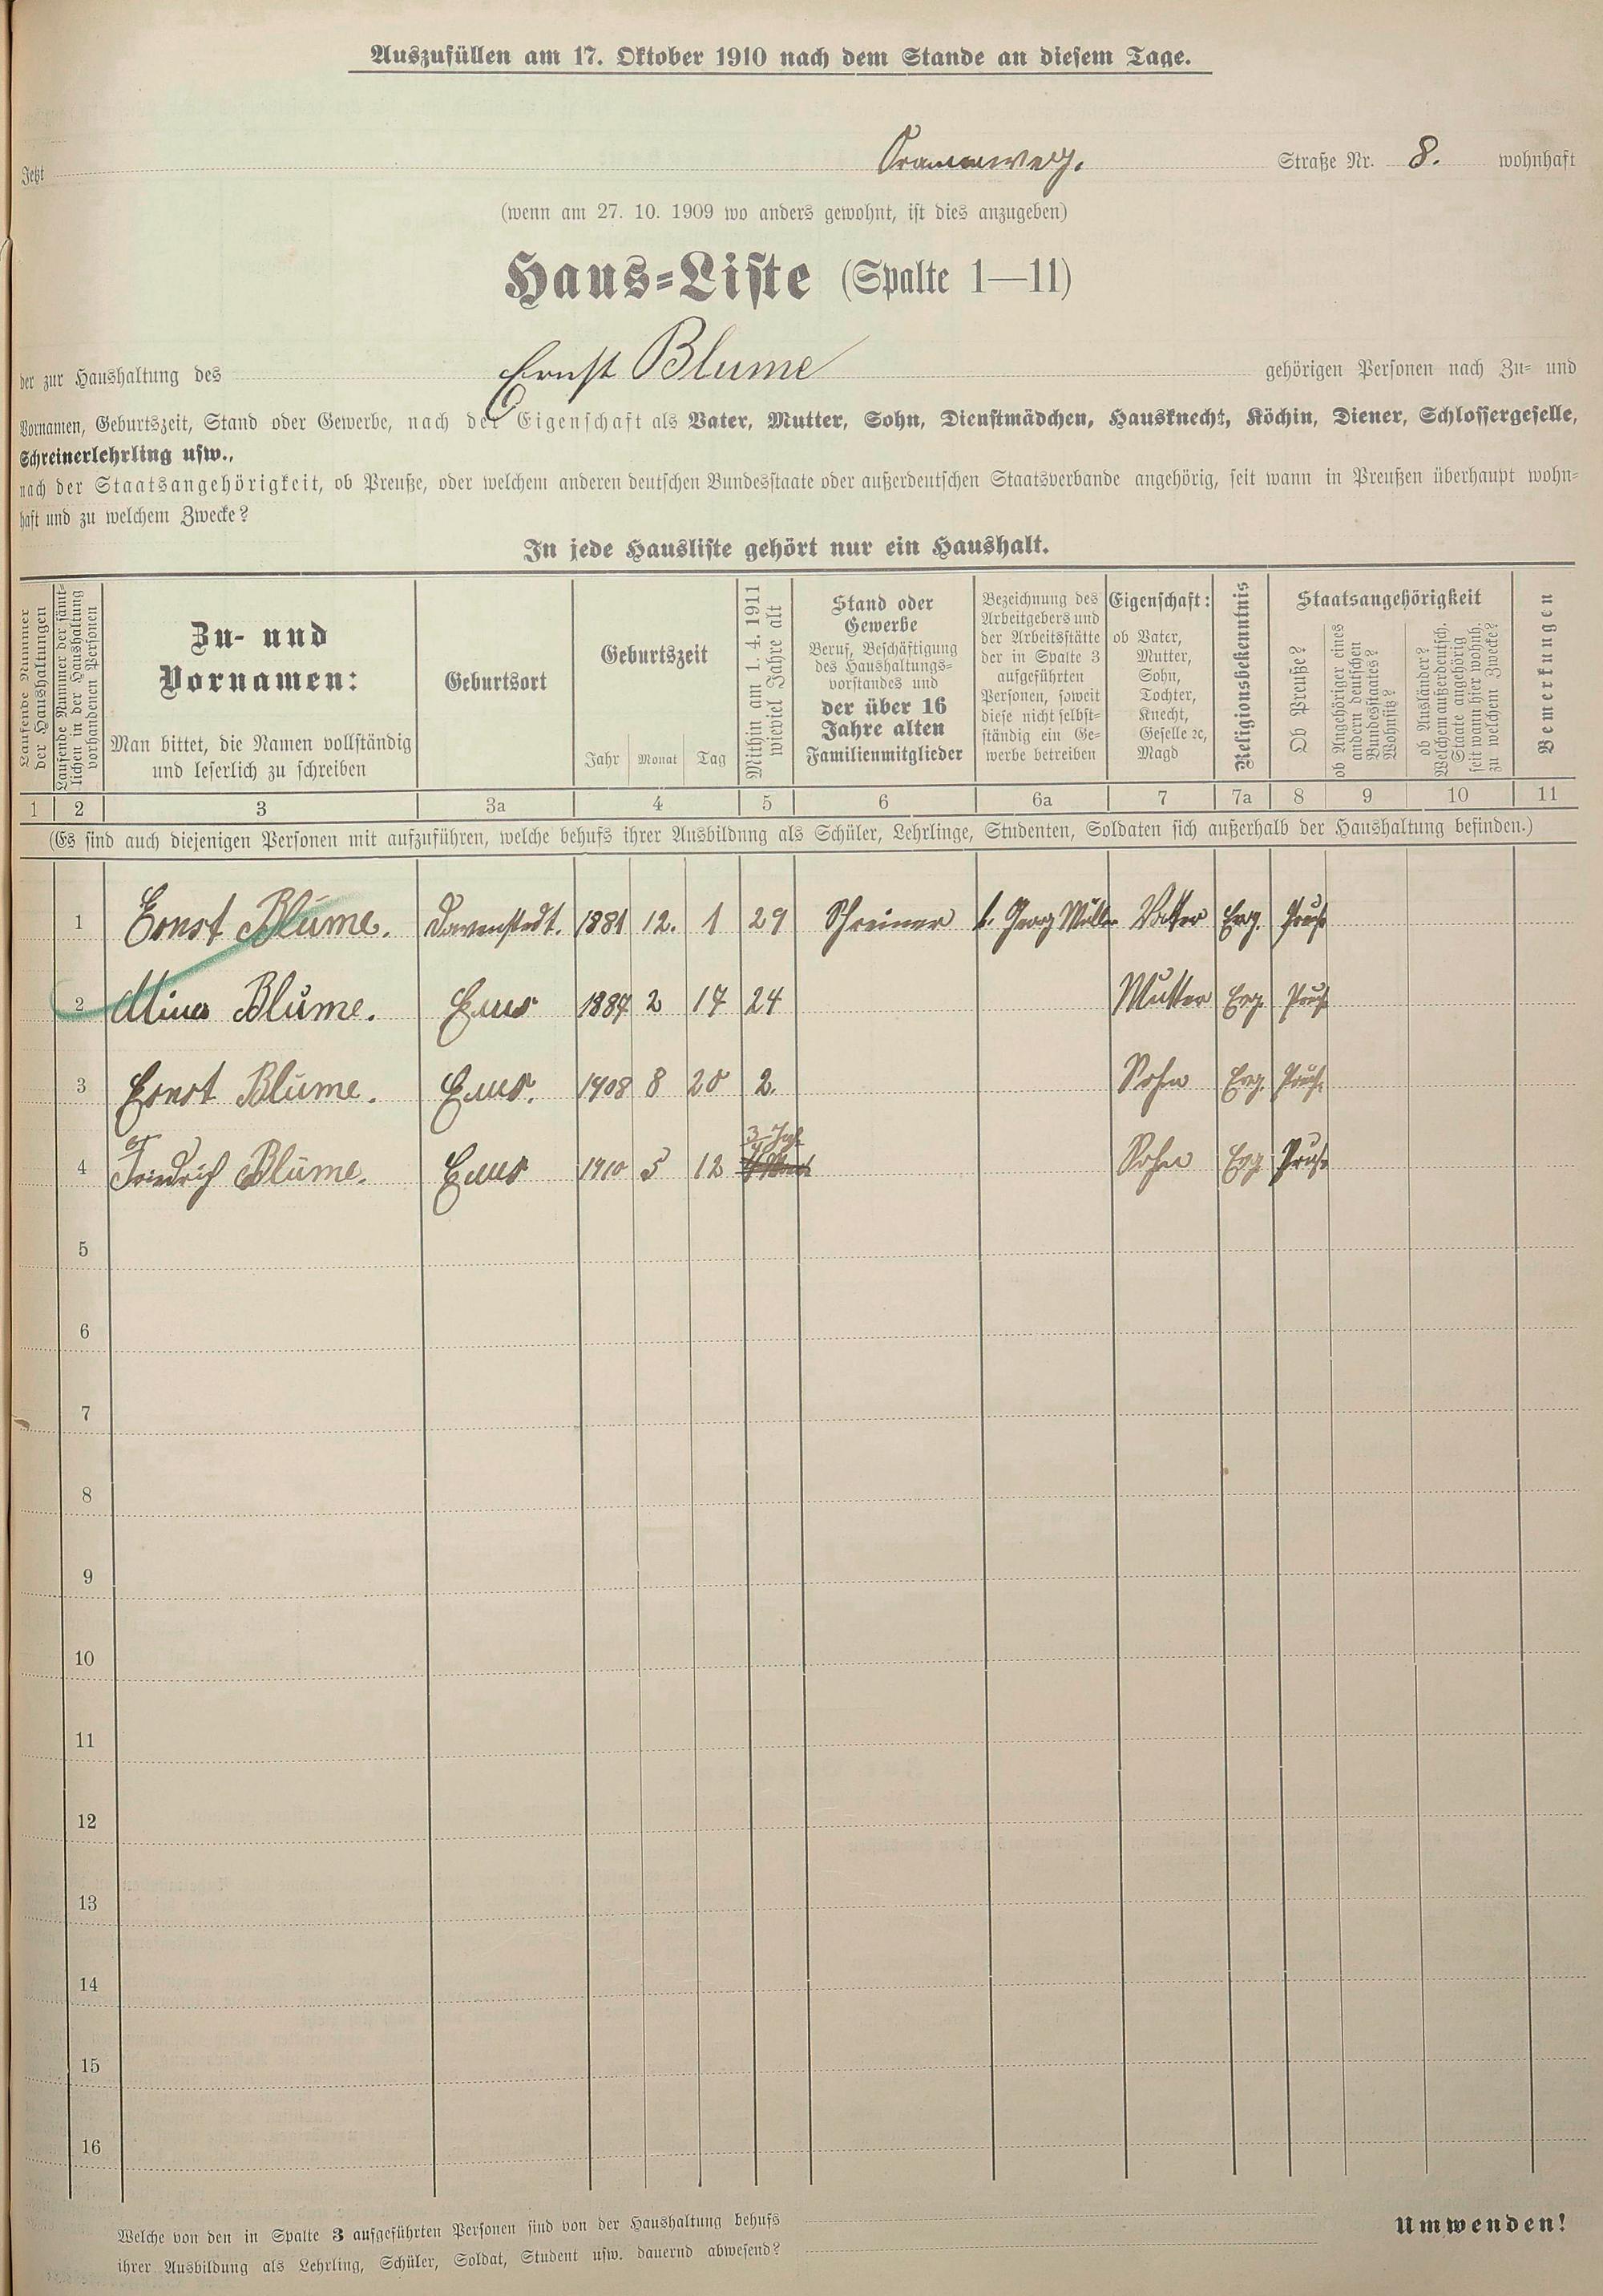 Auszufüllen am 17. Oktober 1910 nach dem Stande an diesem Tage.
Jetzt Straße Nr. 8. wohnhaft
(wenn am 27. 10. 1909 wo anders gewohnt, ist dies anzugeben)
Haus-Liste (Spalte 1—11)
der zur Haushaltung des Ernst Blume gehörigen Personen nach Zu- und
Vornamen, Geburtszeit, Stand oder Gewerbe, nach der Eigenschaft als Vater, Mutter, Sohn, Dienstmädchen, Hausknecht, Köchin, Diener, Schlossergeselle,
Schreinerlehrling usw.,
nach der Staatsangehörigkeit, ob Preuße, oder welchem anderen deutschen Bundesstaate oder außerdeutschen Staatsverbande angehörig, seit wann in Preußen überhaupt wohn-
haft und zu welchem Zwecke?
In jede Hausliste gehört nur ein Haushalt.
Laufende Nummer
der Haushaltungen
Laufende Nummer der sämt-
lichen in der Haushaltung
vorhandenen Personen
Zu- und
Vornamen:
Man bittet, die Namen vollständig
und leserlich zu schreiben
Geburtsort
Geburtszeit
Jahr Monat Tag
Mithin am 1. 4. 1911
wieviel Jahre alt
Stand oder
Gewerbe
Beruf, Beschäftigung
des Haushaltungs-
vorstandes und
der über 16
Jahre alten
Familienmitglieder
Bezeichnung des
Arbeitgebers und
der Arbeitsstätte
der in Spalte 3
aufgeführten
Personen, soweit
diese nicht selbst-
ständig ein Ge-
werbe betreiben
Eigenschaft:
ob Vater,
Mutter,
Sohn,
Tochter,
Knecht,
Geselle ec,
Magd
Religionsbekenntnis
Staatsangehörigkeit
Ob Preuße?
ob Angehöriger eines
andern deutschen
Bundesstaates?
Wohnsitz?
ob Ausländer?
Welchem außerdeutsch.
Staate angehörig
seit wann hier wohnh.
zu welchem Zwecke?
Bemerkungen
1 2 3 3a 4 5 6 6a 7 7a 8 9 10 11
(Es sind auch diejenigen Personen mit aufzuführen, welche behufs ihrer Ausbildung als Schüler, Lehrlinge, Studenten, Soldaten sich außerhalb der Haushaltung befinden.)
1 Ernst Blume. Davenstedt. 1881 12. 1 29 Schreiner b. Georg Müller Vatter Evg. Preuß
2 Mina Blume. Ems 1887 2 17 24 Mutter Evg. Preuß
3 Ernst Blume. Ems. 1908 8 20 2. Sohn Evg. Preuß.
4 Friedrich Blume. Ems 1910 5 12 Sohn Evg Preuß
5
6
7
8
9
10
11
12
13
14
15
16
Welche von den in Spalte 3 aufgeführten Personen sind von der Haushaltung behufs
ihrer Ausbildung als Lehrling, Schüler, Soldat, Student usw. dauernd abwesend?
Umwenden!